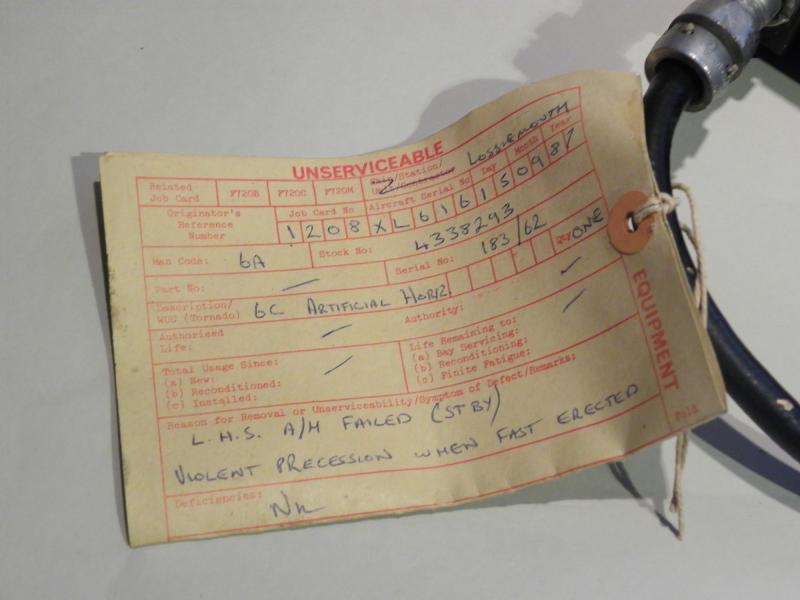 UNSERVICEABLE
Related Job Card F720B F720C F720M Ship/Station/ Unit/Contractor LOSSIEMOUTH
Originator's Reference Number Job Card No Aircraft Serial No Day Month Year
1208 XL616 15 09 87
Man Code: 6A Stock No: 4338293
Part No: — Serial No: 183/62 Qty ONE
Description/ WUC (Tornado) 6C ARTIFICIAL HORIZ.
Authorised Life: — Authority:
Total Usage Since:
(a) New:
(b) Reconditioned:
(c) Installed:
Life Remaining to:
(a) Bay Servicing:
(b) Reconditioning:
(c) Finite Fatigue:
Reason for Removal or Unserviceability/Symptom of Defect/Remarks:
L.H.S. A/H FAILED (STBY)
VIOLENT PRECESSION WHEN FAST ERECTED
Deficiencies: NIL
EQUIPMENT
Fold